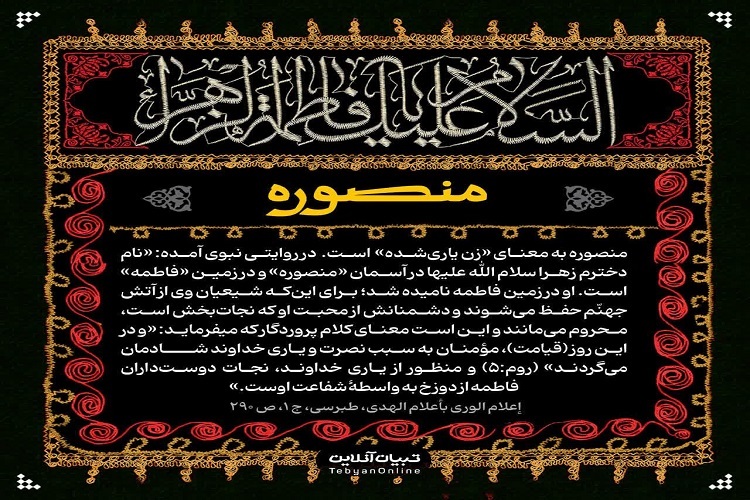 السلام علیك یا فاطمة الزهرا
منصوره
منصوره به معنای «زن یاری‌شده» است. در روایتی نبوی آمده: «نام
دخترم زهرا سلام الله علیها در آسمان «منصوره» و در زمین «فاطمه»
است. او در زمین فاطمه نامیده شد؛ برای این‌که شیعیان وی از آتش
جهنّم حفظ می‌شوند و دشمنانش از محبت او که نجات‌بخش است،
محروم می‌مانند و این است معنای کلام پروردگار که میفرماید: «و در
این روز (قیامت)، مؤمنان به سبب نصرت و یاری خداوند شادمان
می‌گردند» (روم:۵) و منظور از یاری خداوند، نجات دوست‌داران
فاطمه از دوزخ به واسطهٔ شفاعت اوست.»
إعلام الوری بأعلام الهدی، طبرسی، ج ۱، ص ۲۹۰
تبیان آنلاین
TebyanOnline